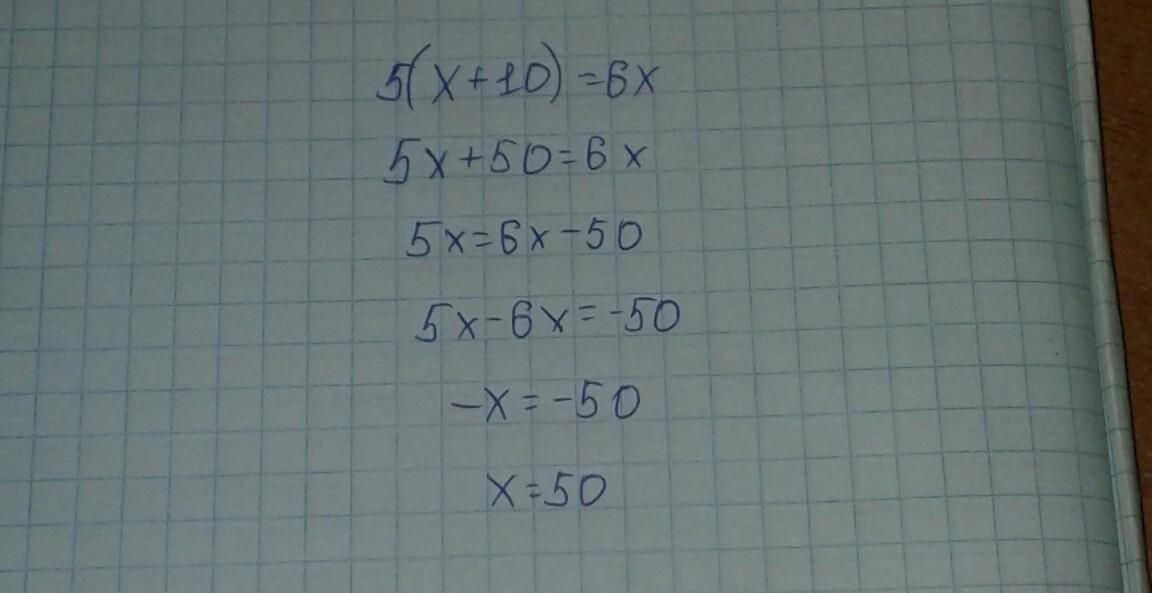 5(x+10)=6x
5x+50=6x
5x=6x-50
5x-6x=-50
-x=-50
x=50